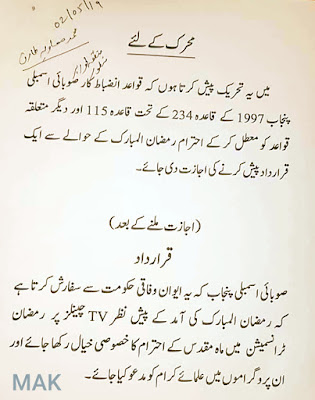 02/05/19
محرک کے لئے
میں یہ تحریک پیش کرتا ہوں کہ قواعد انضباط کار صوبائی اسمبلی
پنجاب 1997 کے قاعدہ 234 کے تحت قاعدہ 115 اور دیگر متعلقہ
قواعد کو معطل کر کے احترام رمضان المبارک کے حوالے سے ایک
قرارداد پیش کرنے کی اجازت دی جائے۔
(اجازت ملنے کے بعد)
قرارداد
صوبائی اسمبلی پنجاب کہ یہ ایوان وفاقی حکومت سے سفارش کرتا ہے
کہ رمضان المبارک کی آمد کے پیش نظر TV چینلز پر رمضان
ٹرانسمیشن میں ماہ مقدس کے احترام کا خصوصی خیال رکھا جائے اور
ان پروگراموں میں علمائے کرام کو مدعو کیا جائے۔
MAK